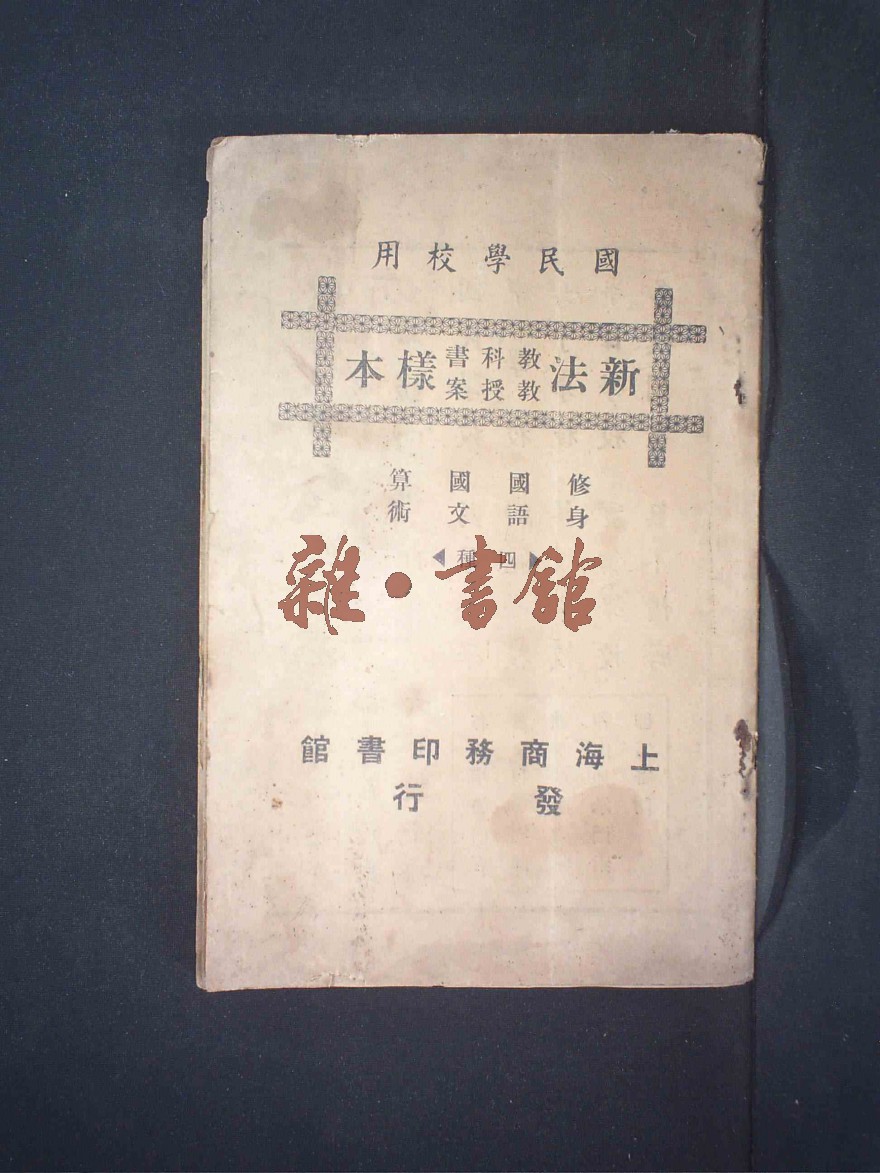 國民學校用
新法教科書教授案樣本
修身
國語
國文
算術
四種
雜·書館
上海商務印書館
發行